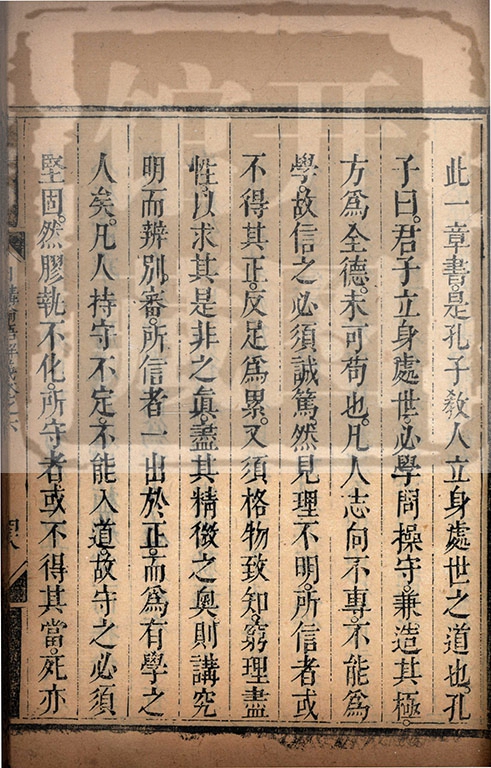 此一章書。是孔子敎人立身處世之道也。孔
子曰。君子立身處世。必學問操守。兼造其極。
方爲全德。未可苟也。凡人志向不專。不能爲
學。故信之必須誠篤。然見理不明。所信者或
不得其正。反足爲累。又須格物致知。窮理盡
性。以求其是非之眞。盡其精微之奥。則講究
明而辨別審。所信者一出於正。而爲有學之
人矣。凡人持守不定。不能入道。故守之必須
堅固。然膠執不化。所守者或不得其當。死亦